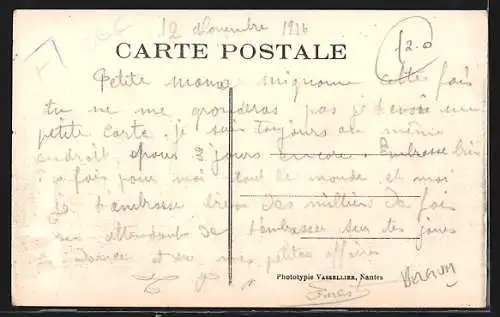 12 Novembre 1916
CARTE POSTALE
12.0
Petite mignonne cette fois
tu ne me gronderas pas je t'envoie une
petite carte. je suis toujours au même
endroit pour 2 jours encore. Embrasse bien
fois pour moi tout le monde, et moi
je t'embrasse des milliers de fois
en attendant de t'embrasser sur tes joues
et mes petites
Phototypie VASSELLIER, Nantes